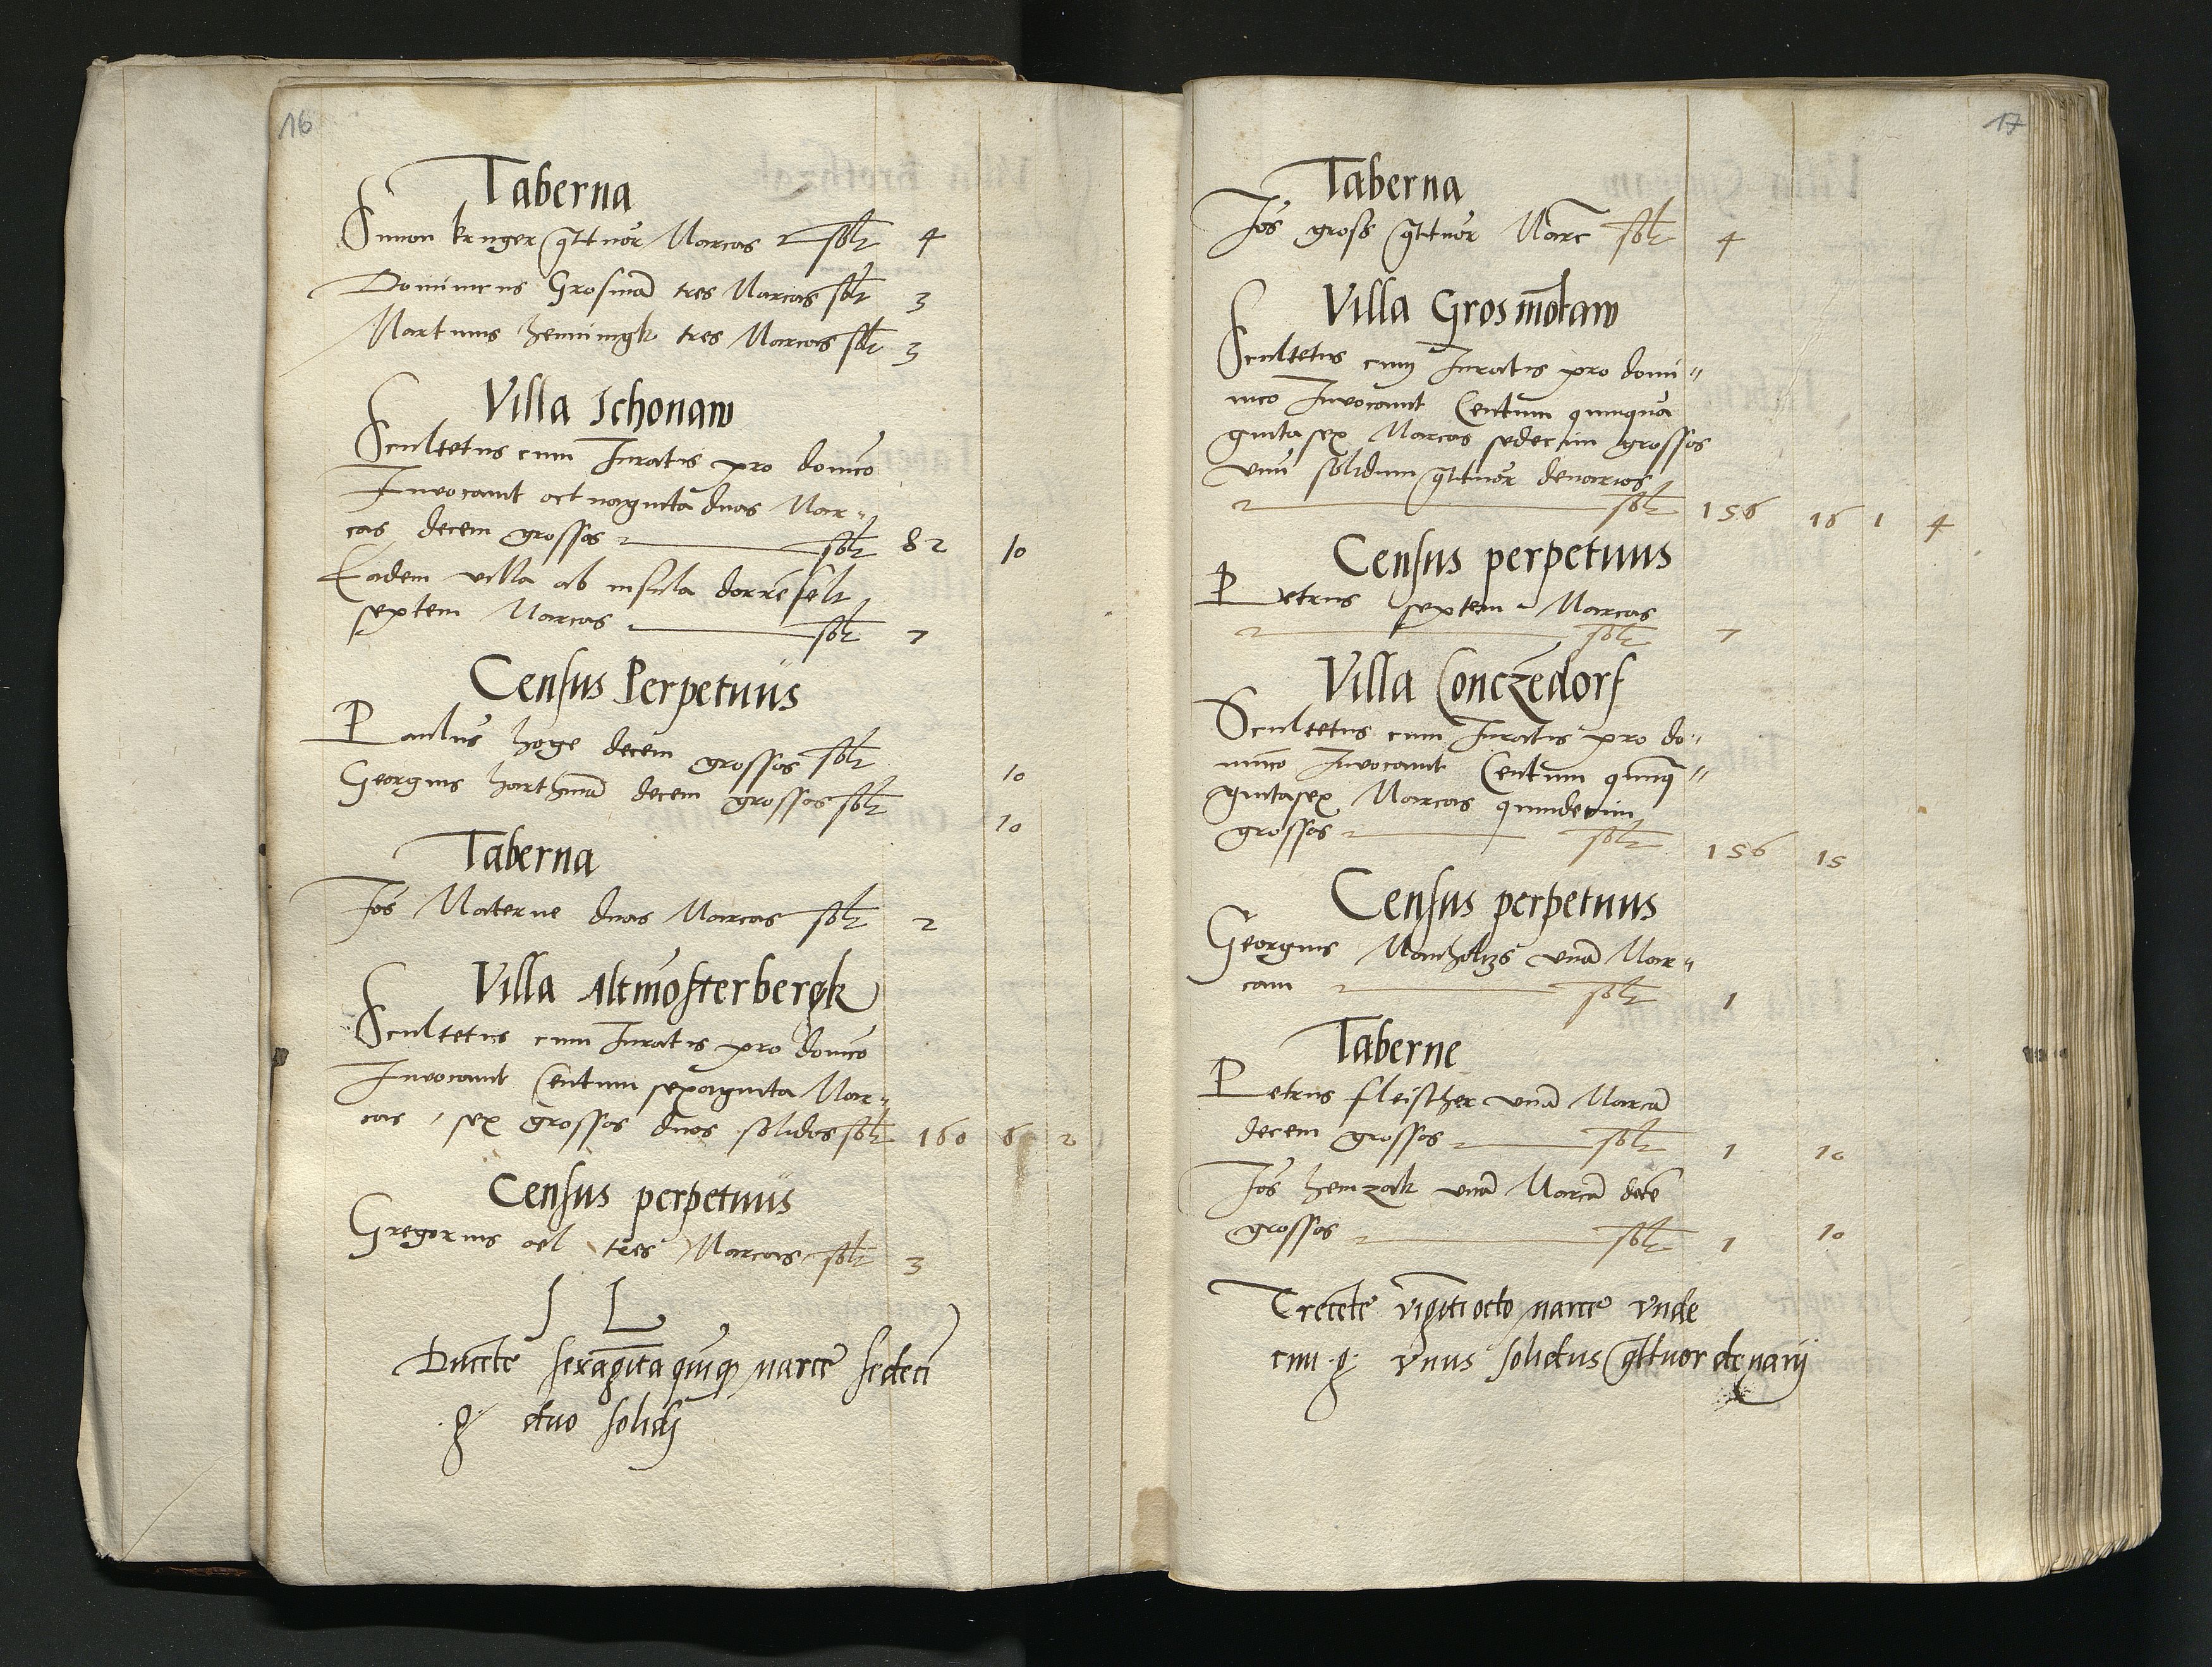 16
Taberna
Simon kruger qttuor Marcas solt 4
Dominicus Grosmā tres Marcas solt 3
Martinus henningk tres Marcas solt 3
Villa Schonaw
Scultetus cum Iuratis pro domīco
Invocavit octuaginta duas Mar-
cas decem grossos solt 82 10
Eadem villa ab insula dorrēfelt
septem Marcas solt 7
Census Perpetuus
Paulus hoge decem grossos solt 10
Georgius harthmā decem grossos solt 10
Taberna
Jos Materne duas Marcas solt 2
Villa Altmōsterbergk
Scultetus cum Iuratis pro domīco
Invocavit Centum sexaginta Mar-
cas, sex grossos duos solidos solt 160 6 2
Census perpetuus
Gregorius oel tres Marcas solt 3
S L
Ducēte sexagīta quīq marce sedecī
.g. duo solidj
17
Taberna
Jos gross qttuor Marc solt 4
Villa Gros mōtaw
Scultetus cum Iuratis pro domi-
nico Invocavit Centum quinqua
gintasex Marcas sedecim grossos
vnū solidum qttuor denarios
solt 156 16 1 4
Census perpetuus
Petrus septem Marcas
solt 7
Villa Conczēdorf
Scultetus cum Iuratis pro do-
minico Invocavit Centum quinq-
gintasex Marcas quindecim
grossos solt 156 15
Census perpetuus
Georgius Manholtzs vnā Mar-
cam solt 1
Taberne
Petrus fleischer vnā Marcā
decem grossos solt 1 10
Jos heinzak vnā Marcā decē
grossos solt 1 10
Trecēte vigīti octo marce vnde
cim .g. vnus solidus qttuor denarij